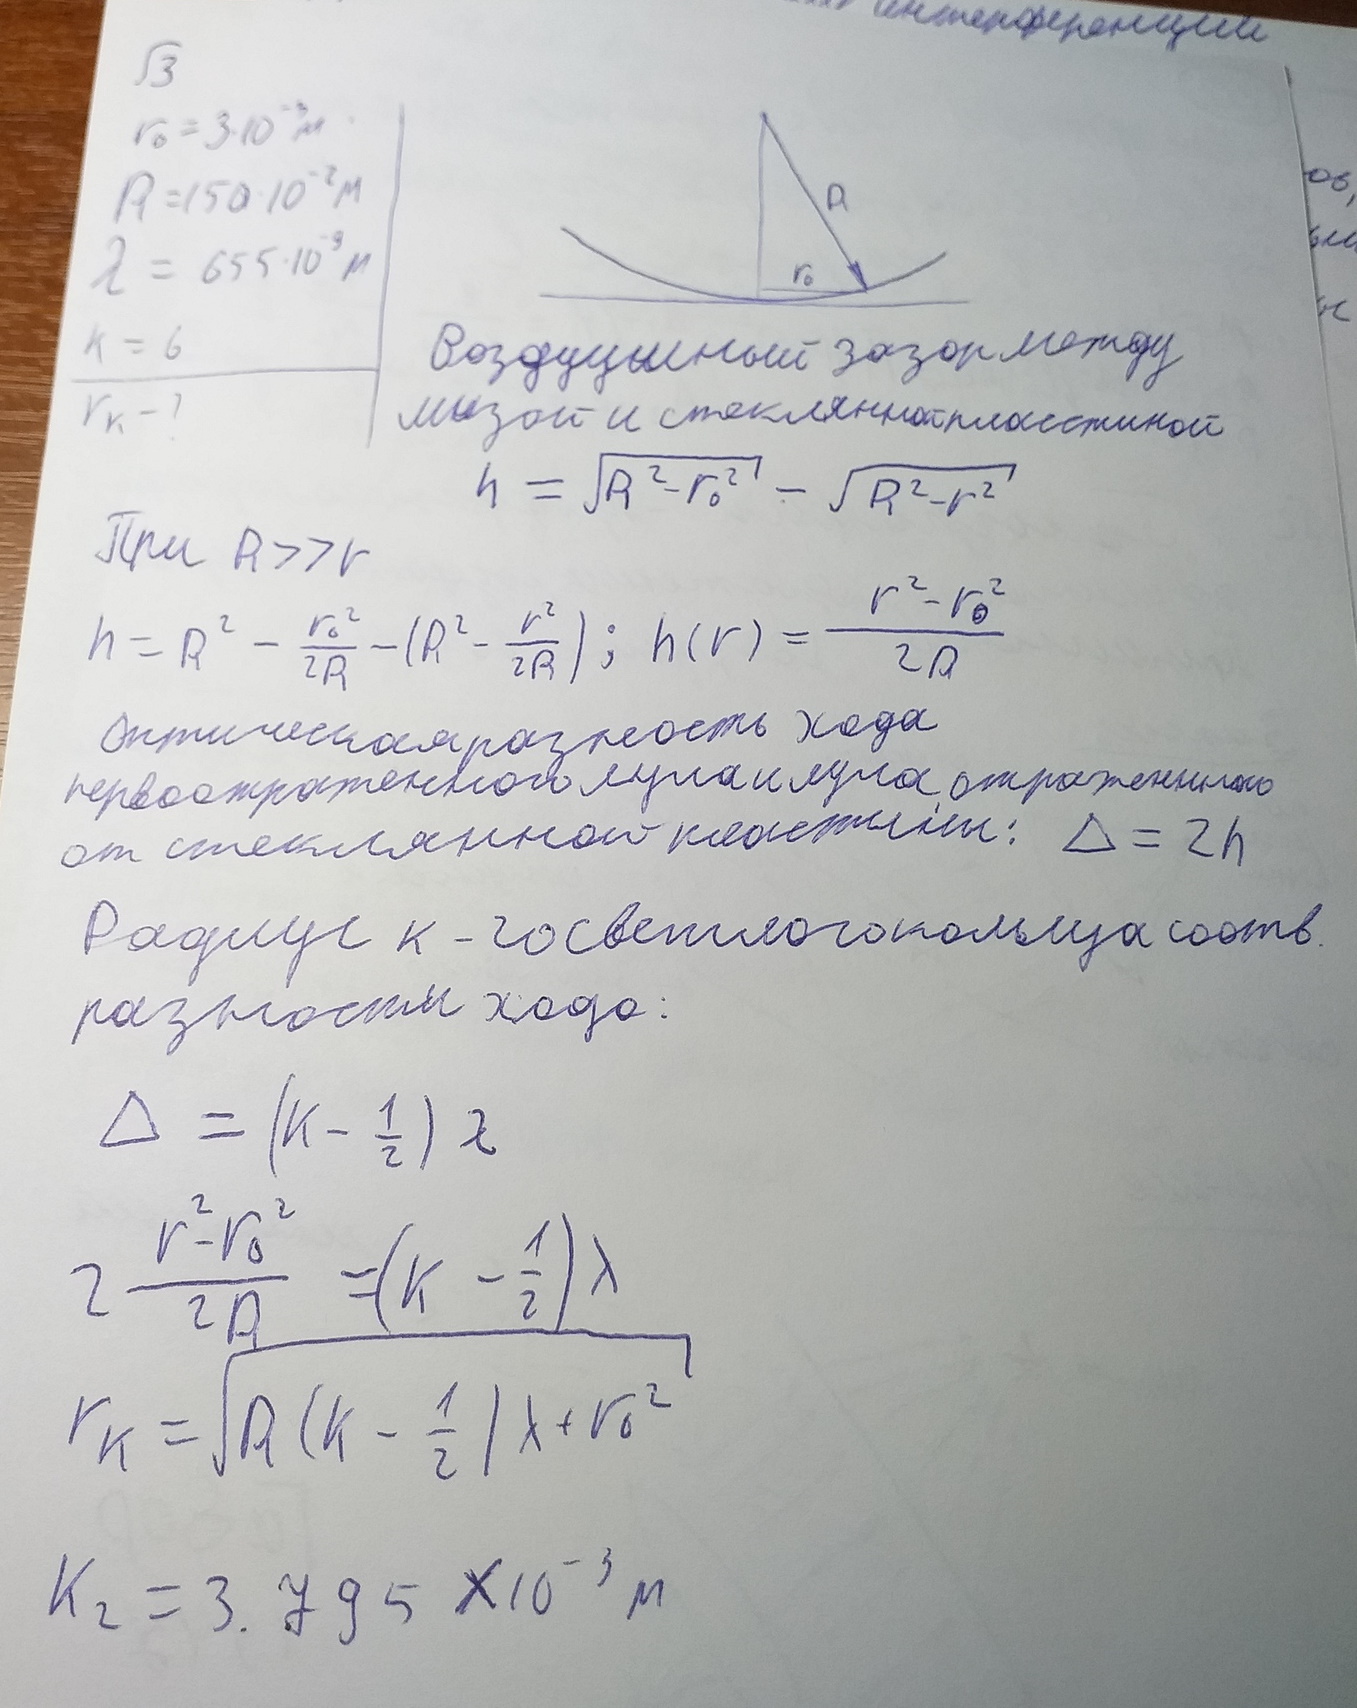 интерференции
√3
r₀ = 3·10⁻³ м
R = 150·10⁻² м
λ = 655·10⁻⁹ м
k = 6
rₖ - ?
R
r₀
Воздушный зазор между
линзой и стеклянной пласстиной
h = √(R² - r₀²) - √(R² - r²)
При R >> r
h = R² - r₀²/2R - (R² - r²/2R) ; h(r) = (r² - r₀²)/2R
Оптическая разность хода
первоотраженного луча и луча, отраженного
от стеклянной пластины: Δ = 2h
Радиус к-го светлого кольца соотв.
разности хода:
Δ = (k - 1/2) λ
2 (r² - r₀²)/2R = (k - 1/2) λ
rₖ = √(R (k - 1/2) λ + r₀²)
K₂ = 3.795 × 10⁻³ м